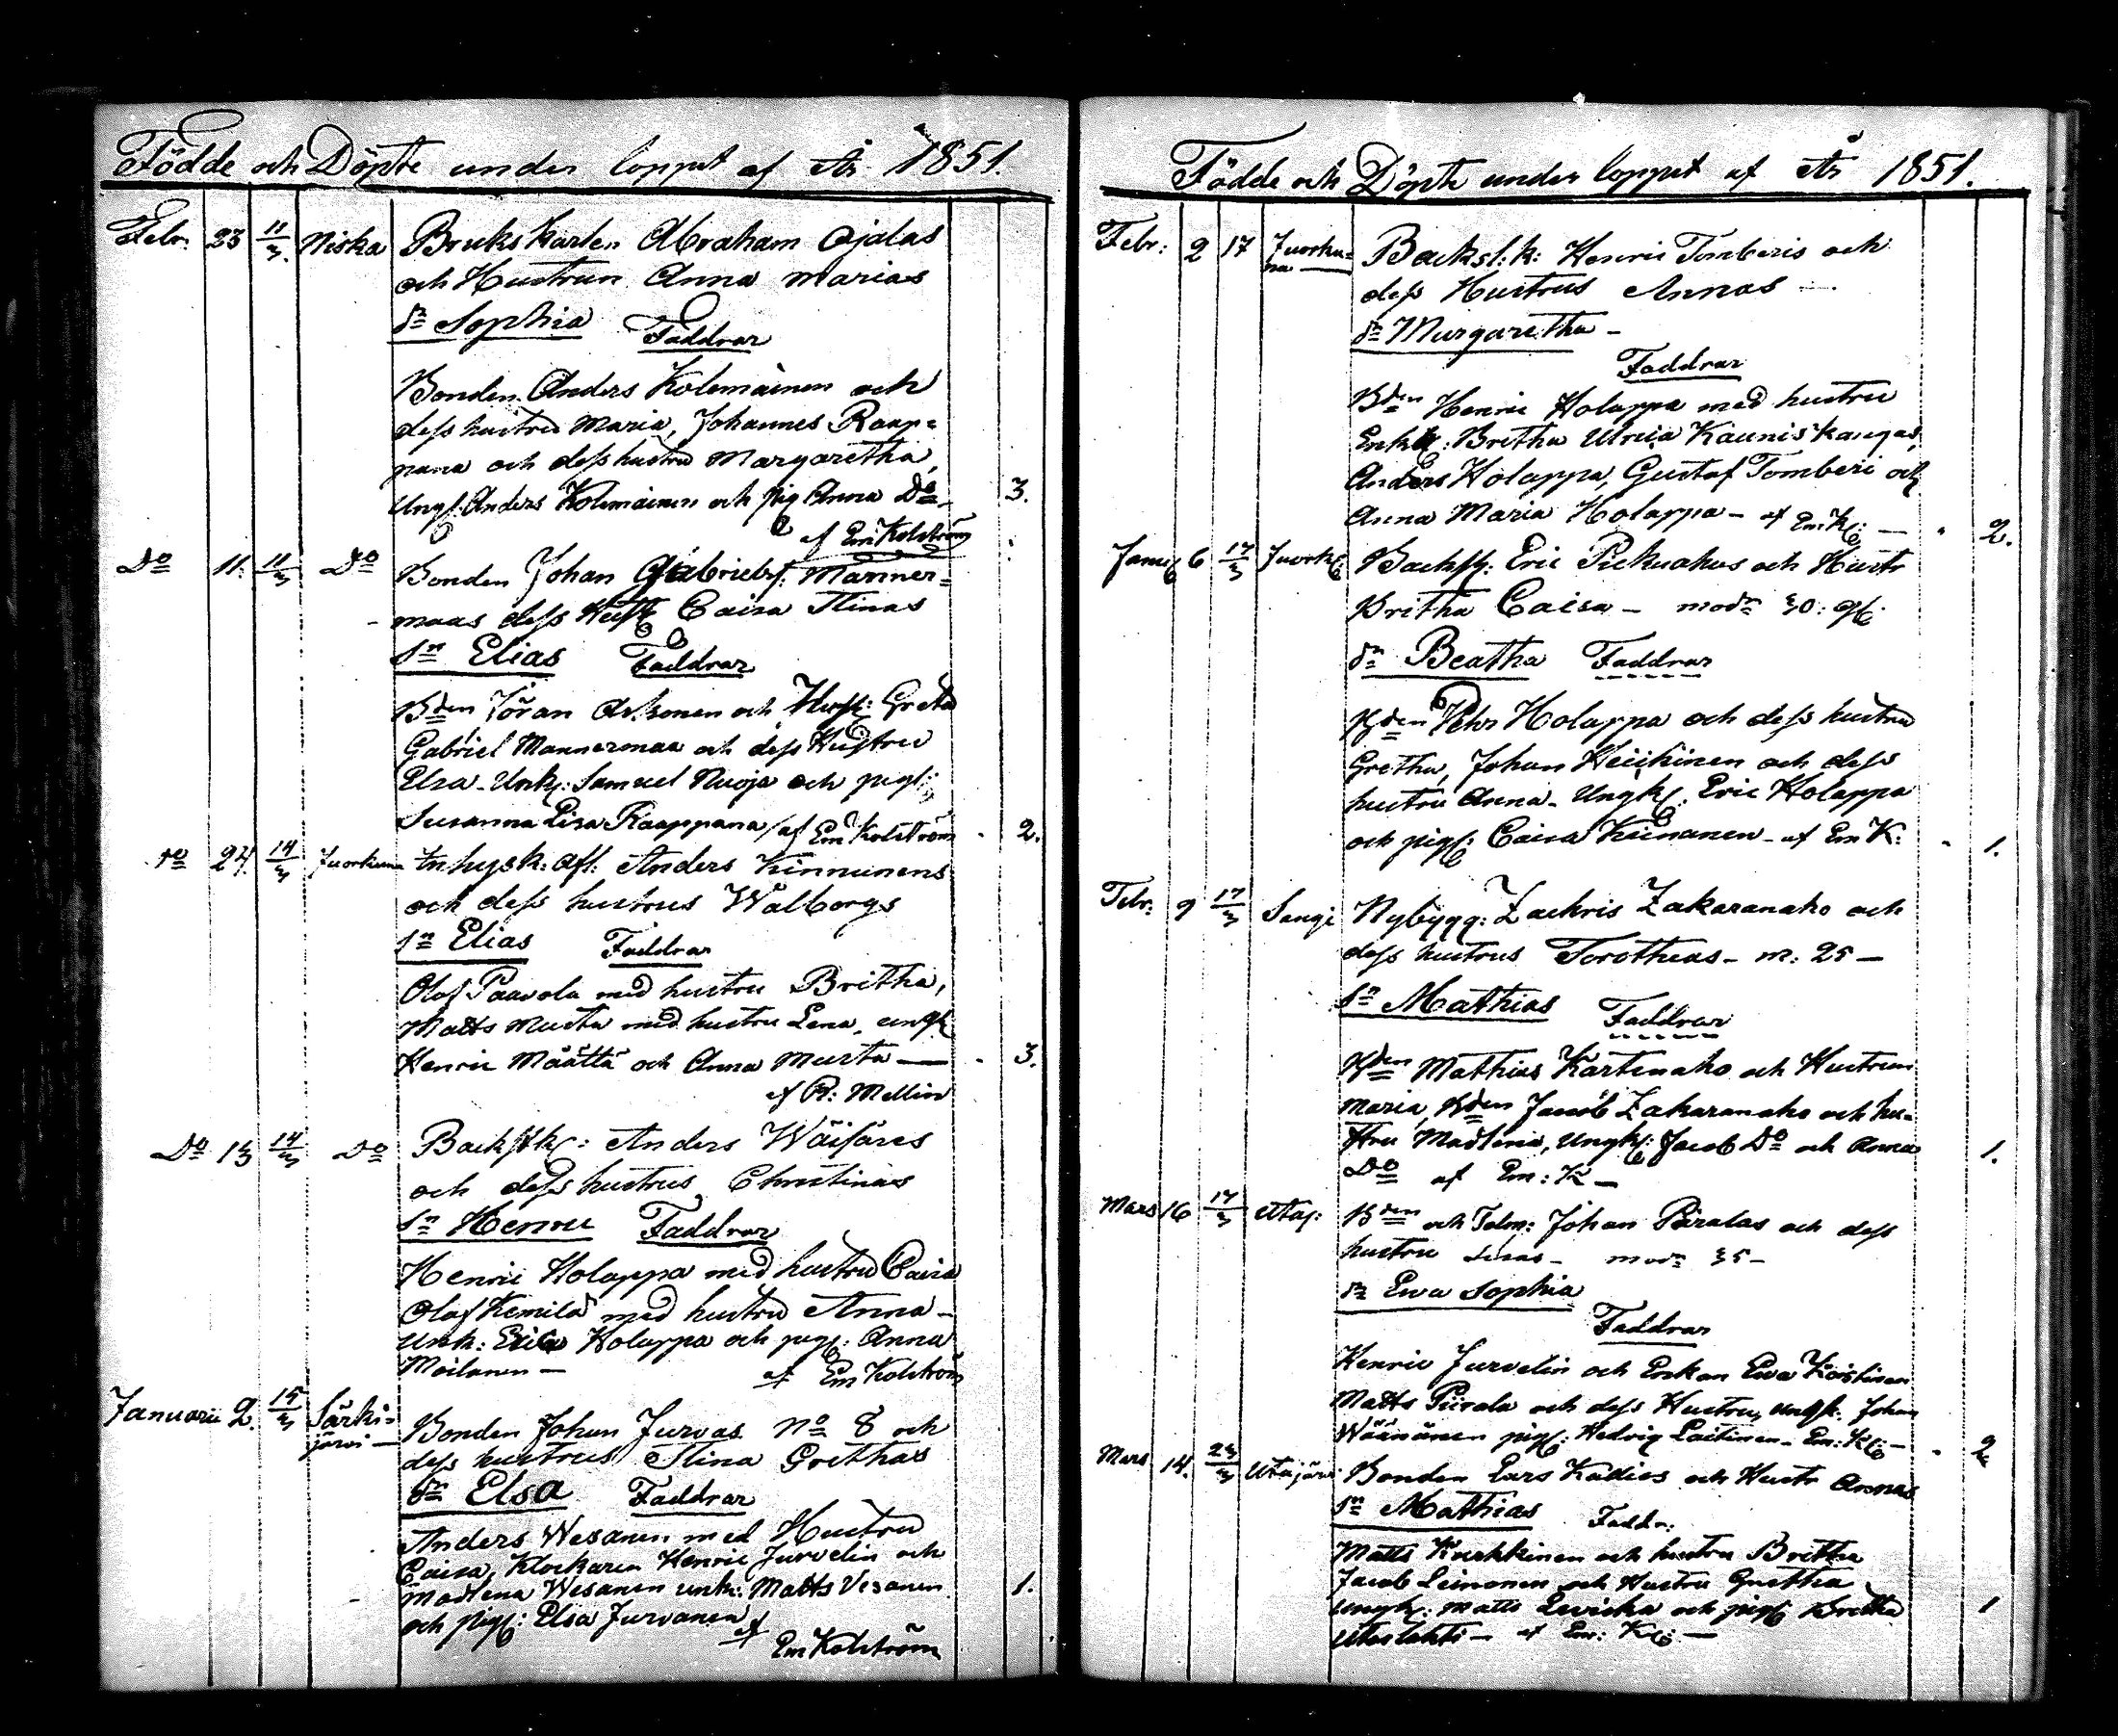 Födde och Döpte under loppet af År 1851.
Febr. 23 11/3. Niska Bruks Karlen Abraham Ojalas
och Hustrun Anna Marias
dr Sophia Faddrar
Bonden Anders Kolemainen och
dess hustru Maria, Johannes Raap=
pana och dess hustru Margaretha,
Ungk. Anders Kolemainen och pig Anna Do 3.
af Em Kolström
Do 11. 11/3 Do Bonden Johan Gabrielss. Manner=
maas dess Hust Caisa Stinas
sn Elias Faddrar
Bden Jöran och Hust: Greta
Gabriel Mannermaa och dess Hustru
Elsa - Unk: Samuel Nuoja och pigk:
Susanna Lisa Raappana af Em Kolström 2.
Do 24. 14/3 Juorkuna Inhysk: Afl: Anders Kinnunens
och dess hustrus Walborgs
sn Elias Faddrar
Olof Paavola med hustru Britha,
Matts Musta med hustru Lena, ungk
Henric Määttä och Anna Musta — 3.
af P: Mellin
Do 13 14/3 Do Backstk: Anders Wäisäres
och dess hustrus Christinas
sn Henric Faddrar
Henric Holappa med hustru Caisa
Olof Kemilä med hustru Anna -
Unk: Eric Holappa och pigk: Anna
Moilanen — af Em Kolström
Januari 2. 15/3 Särki=
järvi — Bonden Johan Jurvas No 8 och
dess hustrus Stina Grethas
dr Elsa Faddrar
Anders Wesanen med Hustru
Caisa, Klockaren Henric Jurvelin och
Madlena Wesanen unk: Matts Vesanen 1.
och pigk: Elsa Jurvanen af
Em Kolström
Födde och Döpte under loppet af År 1851.
Febr: 2 17 Juorku=
na — Backst: k: Henric Tomberis och
dess Hustrus Annas —
dr Margaretha -
Faddrar
Bden Henric Holappa med hustru
Enk: Britha Ulrica Kauniskangas,
Anders Holappa, Gustaf Tomberi och
Anna Maria Holappa - af Em K: — 2.
Janu 6 17/3 Juork: Backsk: Eric Pickuahos och Hustr
Britha Caisa - modr 30:
dr Beatha Faddrar
Bden Pehr Holappa och dess hustru
Gretha, Johan Heickinen och dess
hustru Anna - Ungk: Eric Holappa
och pigk: Caisa - af Em K: 1.
Febr: 9 17/3 Sangi Nybygg: Zachris Zakaranaho och
dess hustrus Dorotheas - m: 25 —
sn Mathias Faddrar
Bden Mathias Kartenaho och Hustrun
Maria, Bden Jacob Zakaranaho och hu=
stru Madlena, Ungk: Jacob Do och Anna 1.
Do af Em: K —
Mars 16 17/3 Utaj: Bden och Johan Piiralas och dess
hustru - modr 35 -
dr Ewa Sophia
Faddrar
Henric Jurvelin och Enkan Ewa Koistinen
Matts Piirala och dess Hustru, ungk: Johan
Wäänänen pigk: Hedvig Laitinen - Em: K: - 2
Mars 14. 23/3 Utajärvi Bonden Lars och Hustr Annas
sn Mathias Faddr:
Matts och hustru Britha
Jacob Leinonen och Hustru Gretha
Ungk: Matts och pigk Britha 1
Utoslahti — af Em: K: —